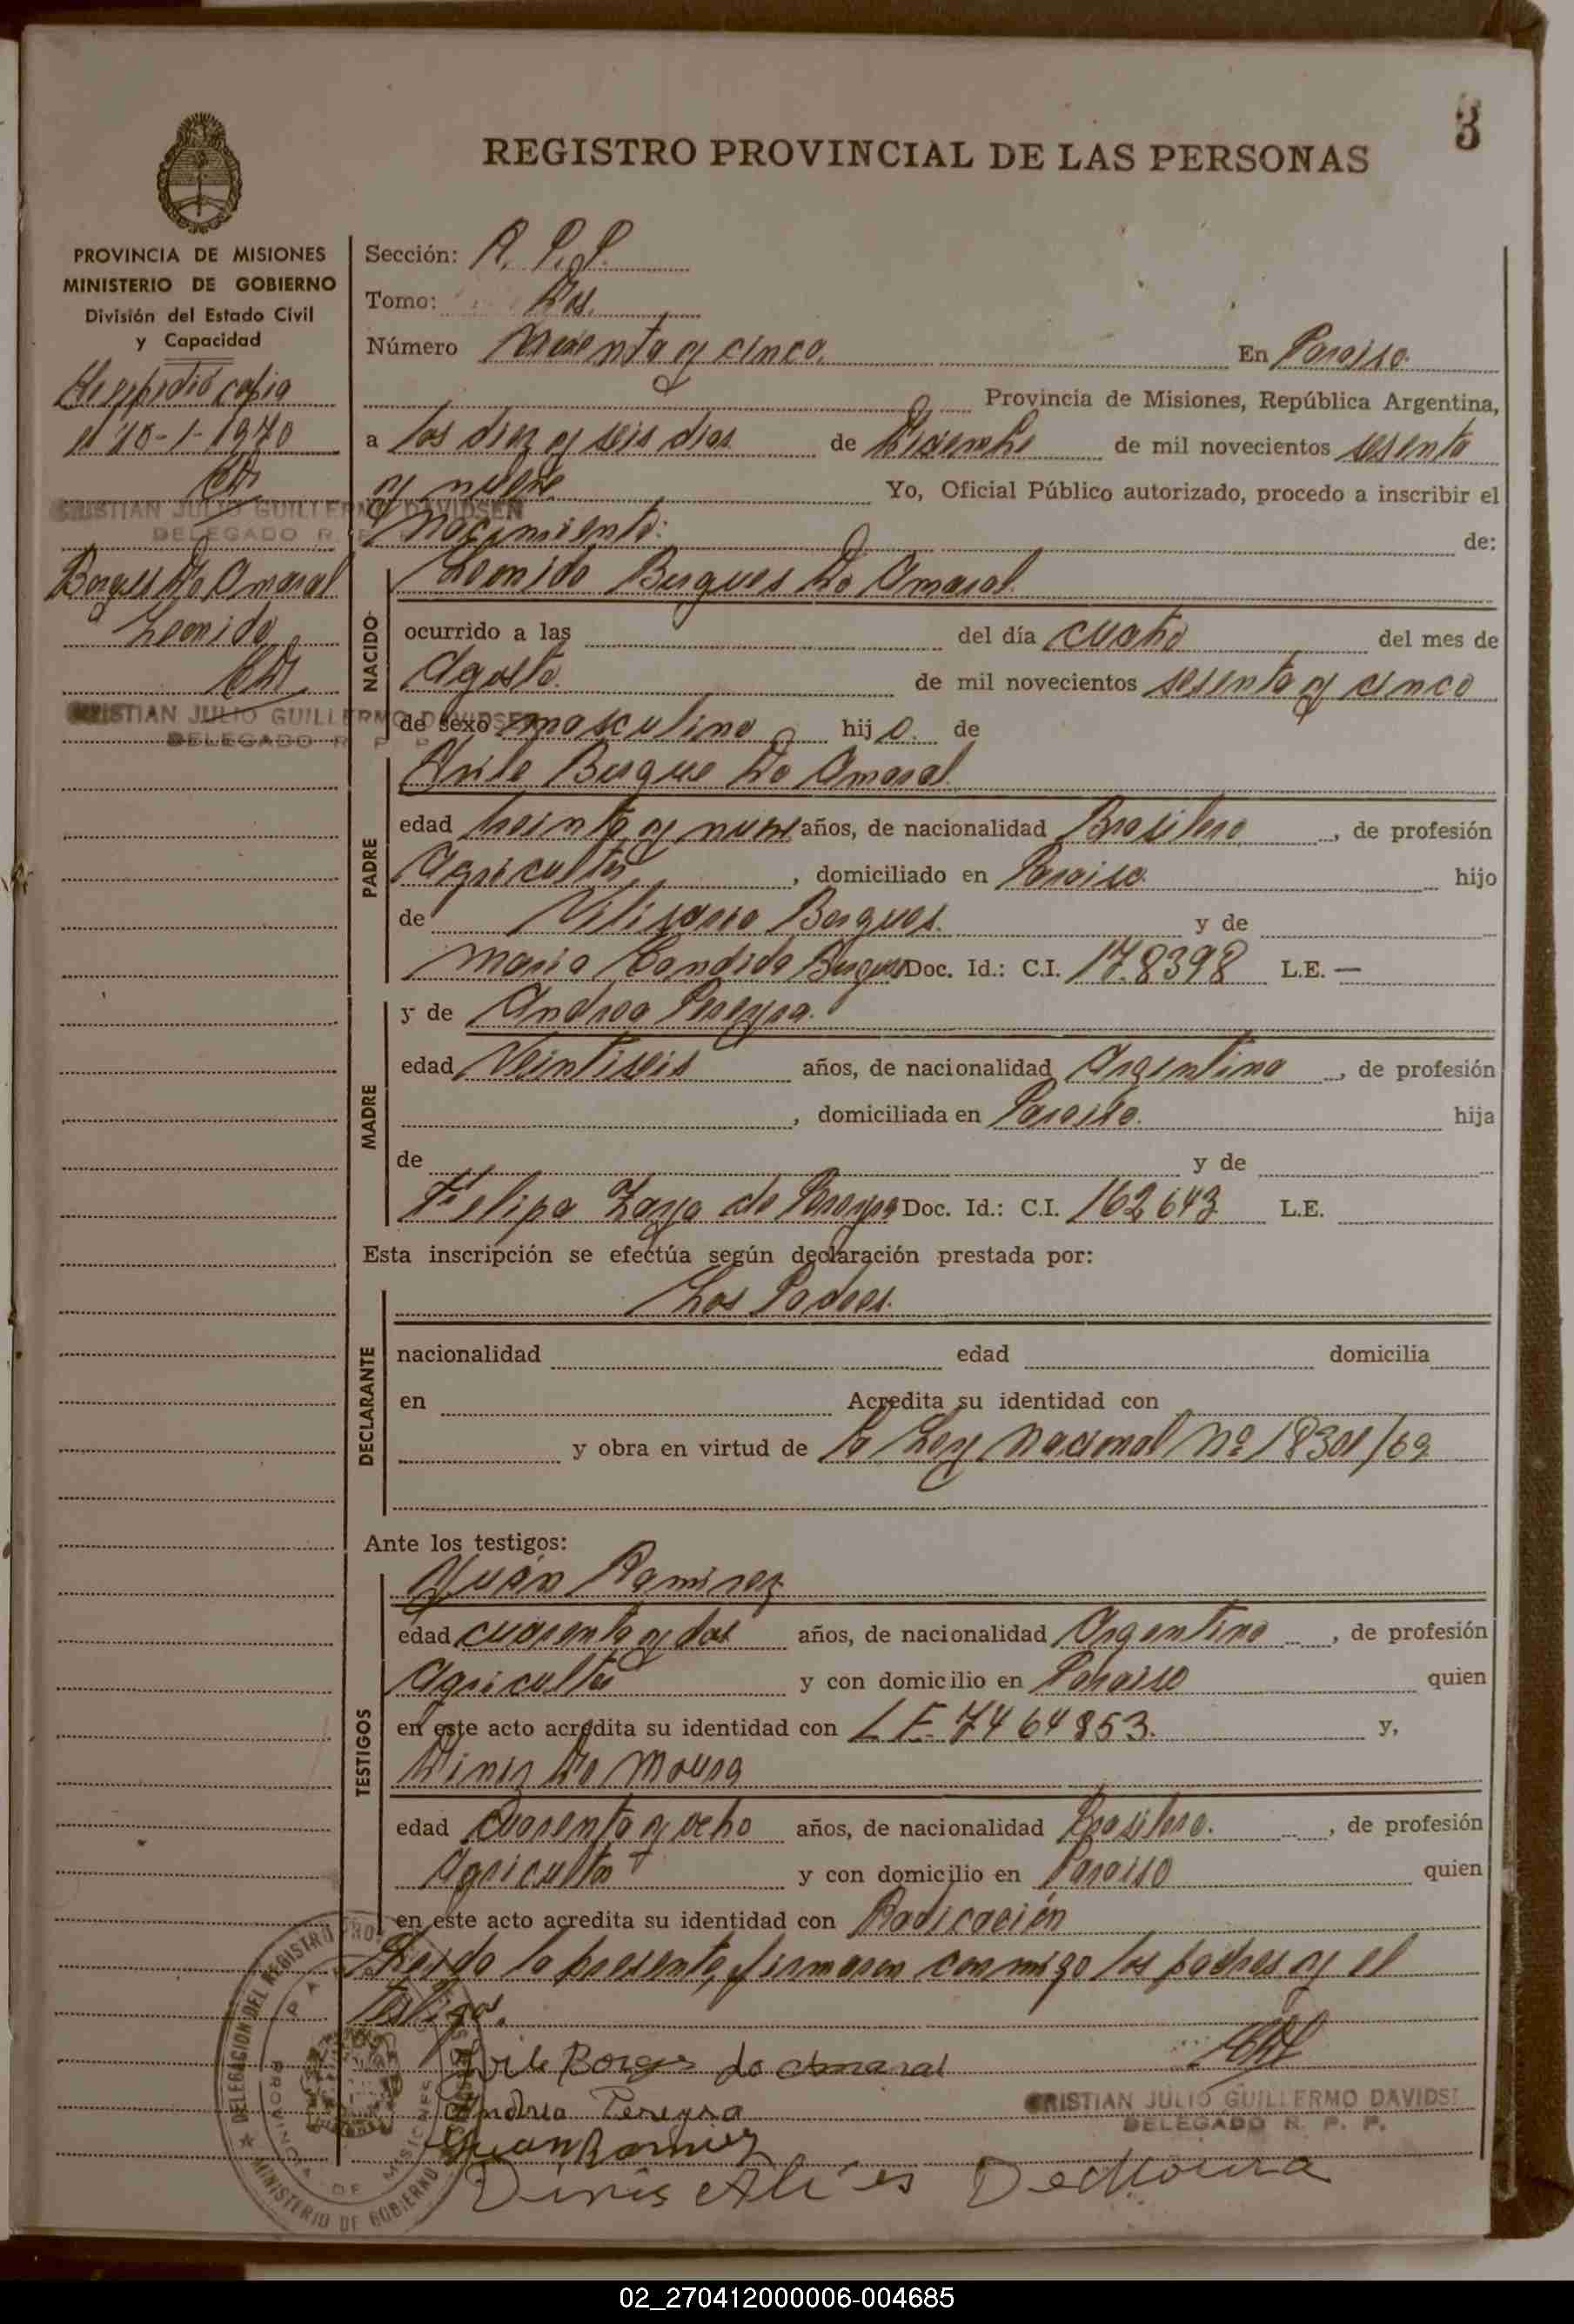 3
REGISTRO PROVINCIAL DE LAS PERSONAS
PROVINCIA DE MISIONES
MINISTERIO DE GOBIERNO
División del Estado Civil
y Capacidad
Se expidió copia
el 10-1-1970
CRISTIAN JULIO GUILLERMO DAVIDSEN
DELEGADO R. P. P.
Borges Do Amaral
Leonido
CRISTIAN JULIO GUILLERMO DAVIDSEN
DELEGADO R. P. P.
Sección:
Tomo: Dos.
Número y cinco. En Paraiso.
Provincia de Misiones, República Argentina,
a los diez y seis dias de Diciembre de mil novecientos sesenta
y nueve Yo, Oficial Público autorizado, procedo a inscribir el
Nacimiento: de:
NACIDO
Leonido Borgues Do Amaral.
ocurrido a las del día cuatro del mes de
Agosto. de mil novecientos sesenta y cinco
de sexo masculino hijo. de
PADRE
Borgues Do Amaral.
edad treinta y nueve años, de nacionalidad Brasilero, de profesión
Agricultor, domiciliado en Paraiso. hijo
de Borgues. y de
Maria Candida Borgues Doc. Id.: C.I. 178398 L.E. —
MADRE
y de Andrea Pereyra.
edad Veintiseis años, de nacionalidad Argentina, de profesión
, domiciliada en Paraiso. hija
de y de
Felipa Zaya de Pereyra Doc. Id.: C.I. 162643 L.E.
Esta inscripción se efectúa según declaración prestada por:
DECLARANTE
Los Padres.
nacionalidad edad domicilia
en Acredita su identidad con
y obra en virtud de la Ley Nacional Nº 18301/69
Ante los testigos:
TESTIGOS
Juán Ramirez
edad cuarenta y dos años, de nacionalidad Argentino, de profesión
Agricultor y con domicilio en Paraiso quien
en este acto acredita su identidad con L E. 7464853. y,
Dinis Do Moura
edad Cuarenta y ocho años, de nacionalidad Brasilero., de profesión
Agricultor y con domicilio en Paraiso quien
en este acto acredita su identidad con Radicación
Leida la presente, firmaron conmigo los padres y el
testigos.
Borges do Amaral
Andrea Pereyra
Juan Ramirez
Dinis De Moura
CRISTIAN JULIO GUILLERMO DAVIDS
DELEGADO R. P. P.
DELEGACION DEL REGISTRO
PROVINCIA DE MISIONES
MINISTERIO DE GOBIERNO
02_270412000006-004685